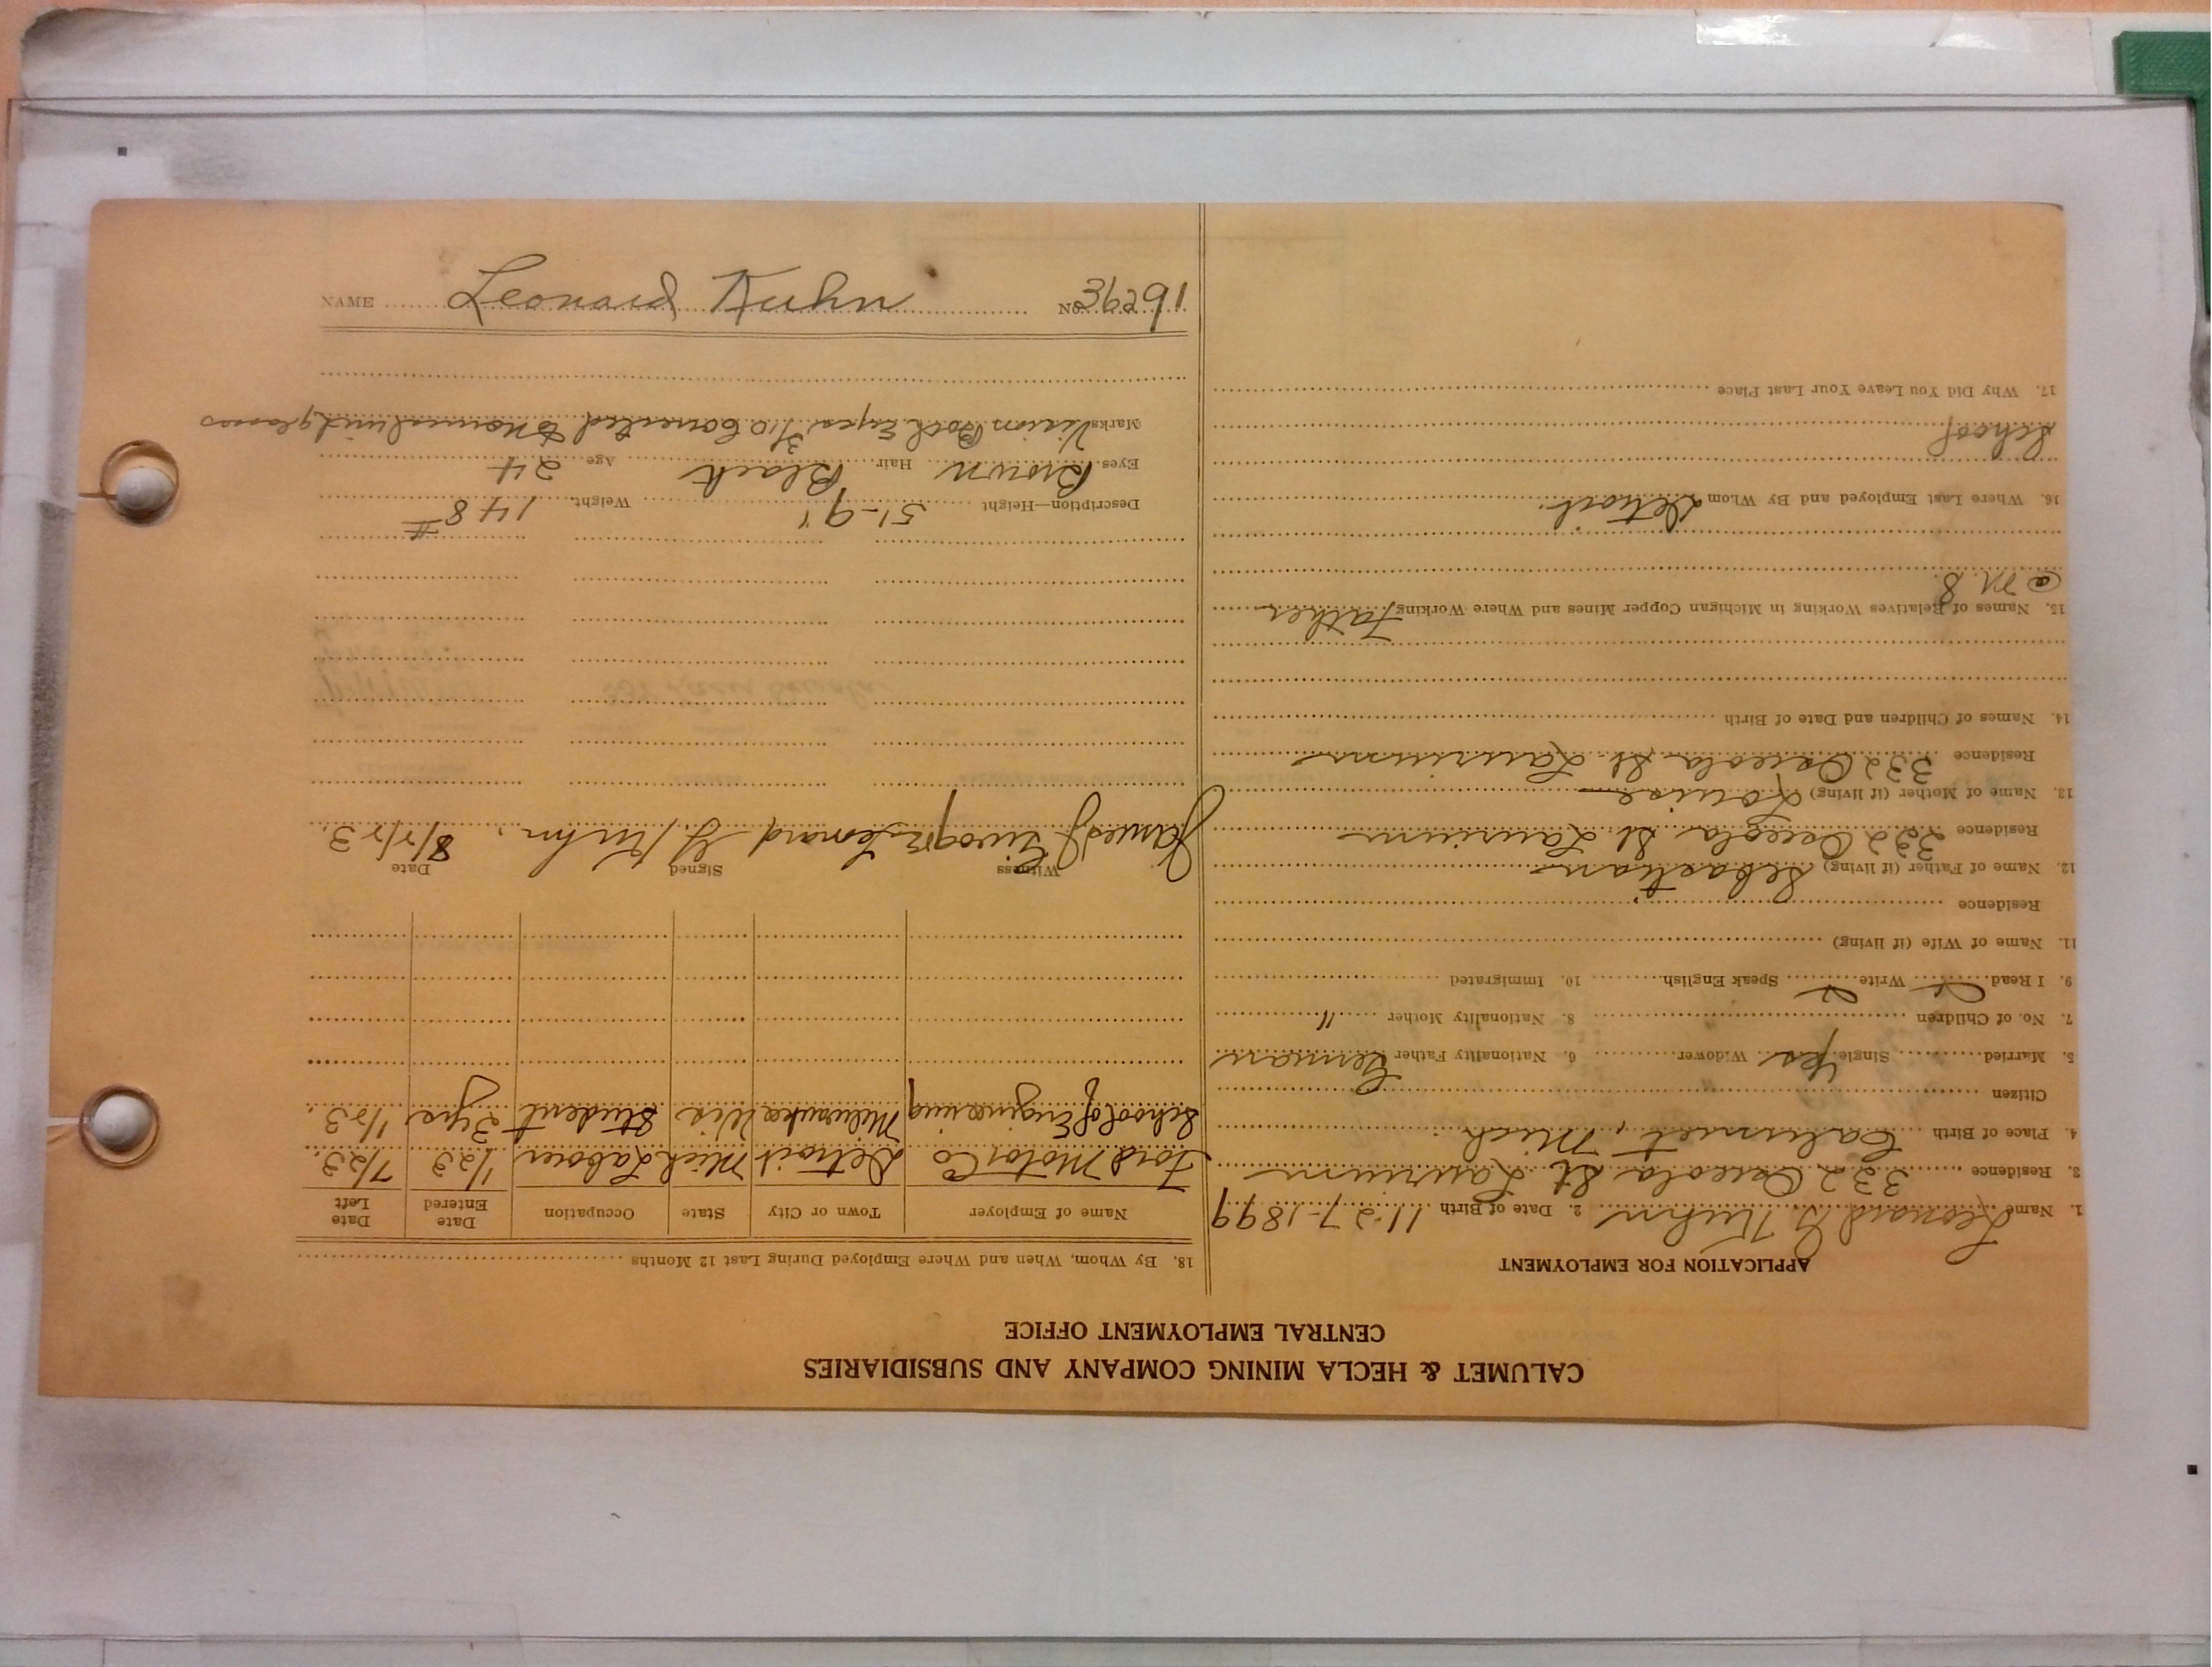 CALUMET & HECLA MINING COMPANY AND SUBSIDIARIES
CENTRAL EMPLOYMENT OFFICE
APPLICATION FOR EMPLOYMENT
1. Name Leonard G Kuhn 2. Date of Birth 11-27-1899
3. Residence 332 Osceola St Laurium
4. Place of Birth Calumet, Mich
Citizen
5. Married Single yes Widower 6. Nationality Father German
7. No. of Children 8. Nationality Mother "
9. I Read Write Speak English 10. Immigrated
11. Name of Wife (if living)
Residence
12. Name of Father (if living) Sebastian
Residence 332 Osceola St Laurium
13. Name of Mother (if living) Louise
Residence 332 Osceola St. Laurium
14. Names of Children and Date of Birth
15. Names of Relatives Working in Michigan Copper Mines and Where Working Father
@ M. 8.
16. Where Last Employed and By Whom Detroit.
School
17. Why Did You Leave Your Last Place
18. By Whom, When and Where Employed During Last 12 Months
Name of Employer Town or City State Occupation Date Entered Date Left
Ford Motor Co Detroit Mich Labour 1/23 7/23
School of Engineering Milwaukee Wis Student 2 yrs 1/23
Witness Signed Date
James J Leonard G. Kuhn. 8/7/23.
Description—Height 5'-9" Weight 148 #
Eyes Brown Hair Black Age 24
Marks Vision Both Eyes 3/10 Corrected to Normal with glasses
NAME Leonard Kuhn NO. 36291